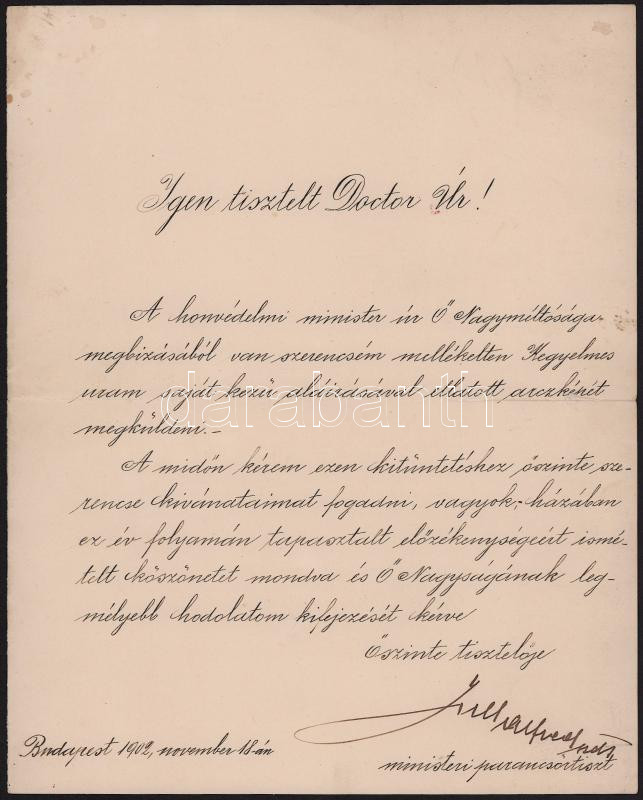 Igen tisztelt Doctor Úr!
A honvédelmi minister úr Ő Nagyméltósága
megbizásából van szerencsém mellékelten Kegyelmes
uram saját kezü aláirásával ellátott arczképét
megküldeni.–
A midőn kérem ezen kitüntetéshez őszinte sze-
rencse kivánataimat fogadni, vagyok,- házában
ez év folyamán tapasztalt előzékenységeért ismé-
telt köszönetet mondva és Ő Nagyságának leg-
mélyebb hodolatom kifejezését kérve
Őszinte tisztelője
Budapest 1902, november 18-án
ministeri parancsőrtiszt
darabanth